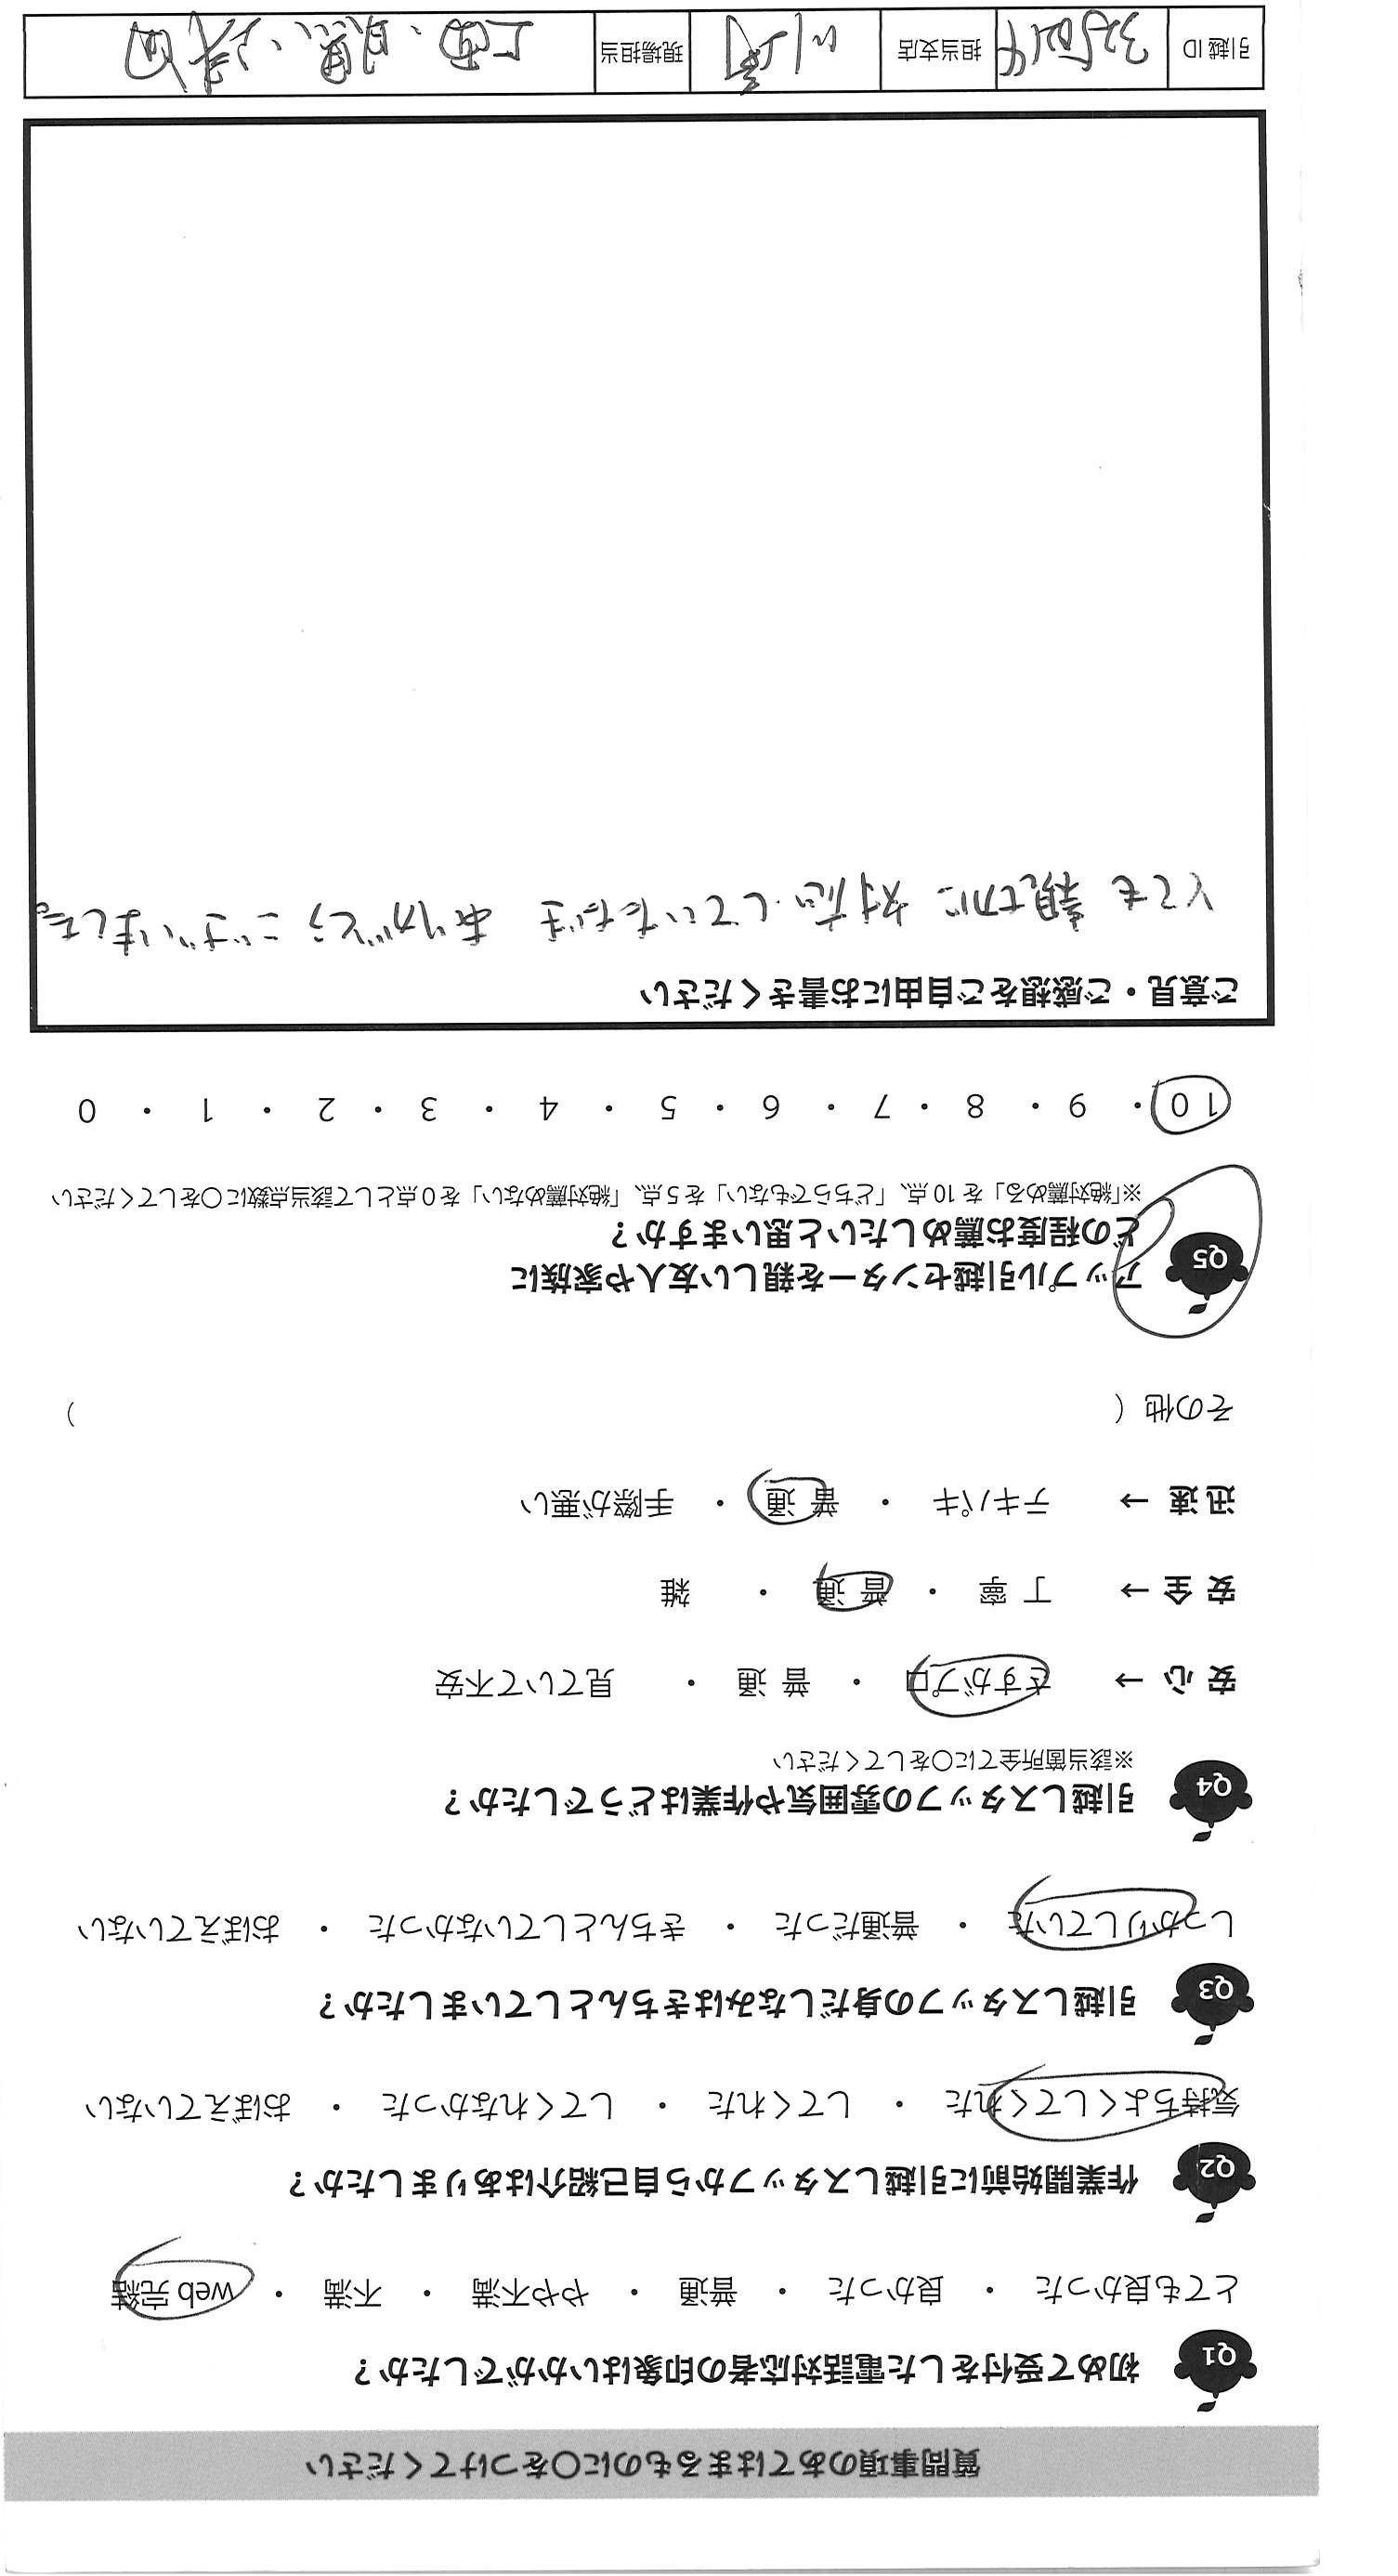 質問事項のあてはまるものに〇をつけてください
Q1 初めて受付をした電話対応者の印象はいかがでしたか？
とても良かった ・ 良かった ・ 普通 ・ やや不満 ・ 不満 ・ web 完結
Q2 作業開始前に引越しスタッフから自己紹介はありましたか？
気持ちよくしてくれた ・ してくれた ・ してくれなかった ・ おぼえていない
Q3 引越しスタッフの身だしなみはきちんとしていましたか？
しっかりしていた ・ 普通だった ・ きちんとしていなかった ・ おぼえていない
Q4 引越しスタッフの雰囲気や作業はどうでしたか？
※該当箇所全てに〇をしてください
安心 → さすがプロ ・ 普通 ・ 見ていて不安
安全 → 丁寧 ・ 普通 ・ 雑
迅速 → テキパキ ・ 普通 ・ 手際が悪い
その他（ ）
Q5 アップル引越センターを親しい友人や家族に
どの程度お薦めしたいと思いますか？
※「絶対薦める」を 10 点、「どちらでもない」を 5 点、「絶対薦めない」を 0 点として該当点数に〇をしてください
10 ・ 9 ・ 8 ・ 7 ・ 6 ・ 5 ・ 4 ・ 3 ・ 2 ・ 1 ・ 0
ご意見・ご感想をご自由にお書きください
とても 親切に 対応していただき ありがとう ございました。
引越 ID 担当支店 川崎 現場担当